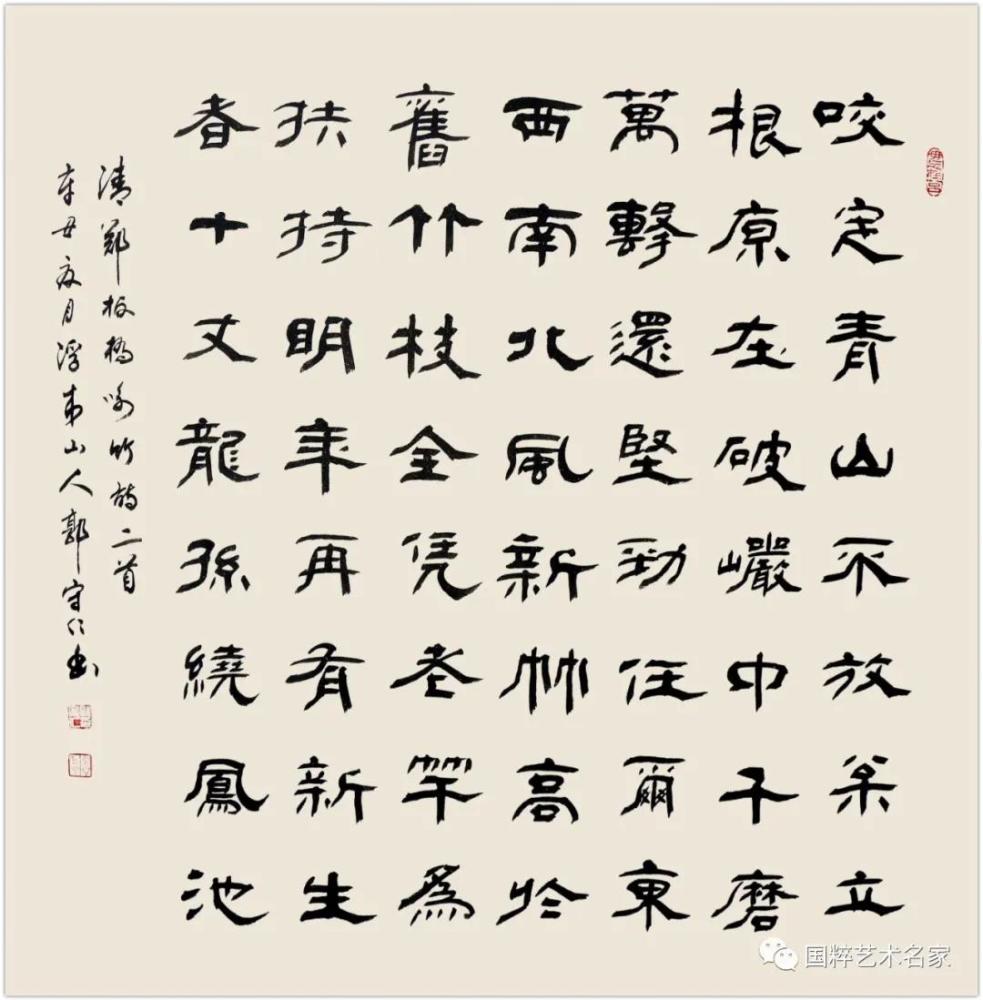 咬定青山不放枀立
根原在破巖中千磨
萬擊還堅勁任爾東
西南北風新竹高於
舊竹枝全凭老竿爲
扶持明年再有新生
春十丈龍孫繞鳳池
清鄭板橋咏竹詩二首
辛丑夏月浮来山人郭守仁書
国粹艺术名家